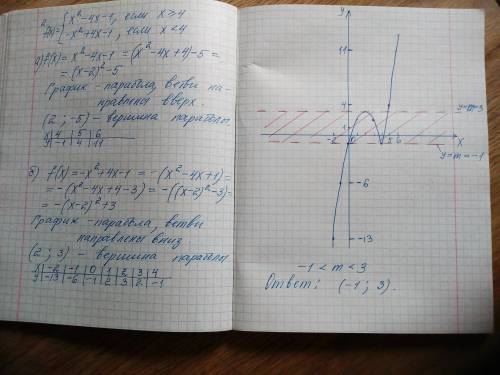 2. f(x)= { x²-4x-1, если x⩾4
-x²+4x-1, если x<4
а) f(x)= x²-4x-1 = (x²-4x+4)-5 =
= (x-2)²-5
График - парабола, ветви на-
правлены вверх.
(2; -5) - вершина параболы
x | 4 | 5 | 6
y | -1 | 4 | 11
б) f(x)=-x²+4x-1 = -(x²-4x+1)=
= -(x²-4x+4-3) = -((x-2)²-3)=
= -(x-2)²+3
График - парабола, ветви
направлены вниз
(2; 3) - вершина параболы
x | -2 | -1 | 0 | 1 | 2 | 3 | 4
y | -13 | -6 | -1 | 2 | 3 | 2 | -1
y
11
4
y=m=3
-2 0 5 6 x
y=m=-1
-6
-13
-1 < m < 3
Ответ: (-1; 3).